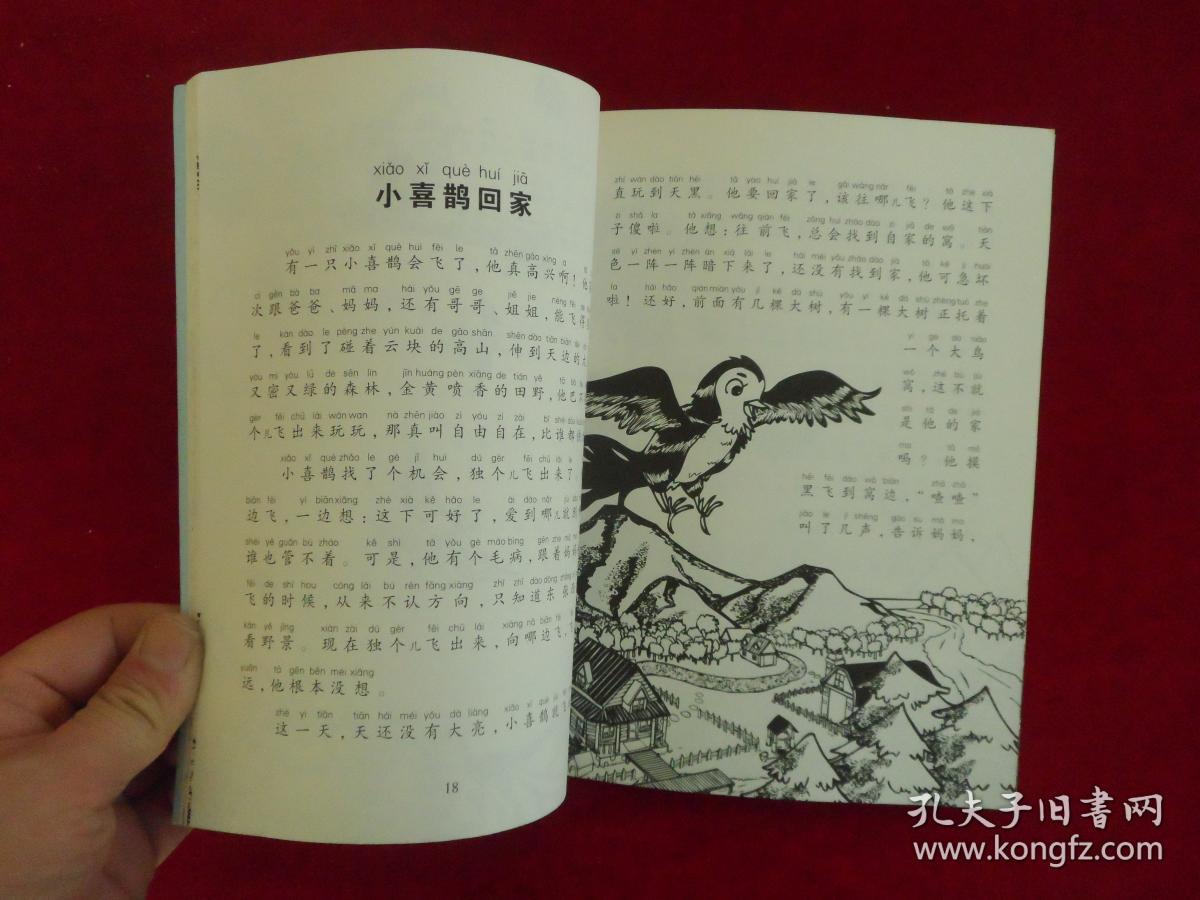 xiǎo xǐ què huí jiā
小喜鹊回家
yǒu yì zhī xiǎo xǐ què huì fēi le tā zhēn gāo xìng a
有一只小喜鹊会飞了，他真高兴啊！他
cì gēn bà ba mā ma hái yǒu gē ge jiě jie néng fēi
次跟爸爸、妈妈，还有哥哥、姐姐，能飞得
le kàn dào le pèng zhe yún kuài de gāo shān shēn dào tiān biān
了，看到了碰着云块的高山，伸到天边的
yòu mì yòu lǜ de sēn lín jīn huáng pēn xiāng de tián yě tā bā
又密又绿的森林，金黄喷香的田野，他巴不
gèr fēi chū lái wán wan nà zhēn jiào zì yóu zì zài bǐ shéi dōu
个儿飞出来玩玩，那真叫自由自在，比谁都
xiǎo xǐ què zhǎo le gè jī huì dú gèr fēi chū lái le
小喜鹊找了个机会，独个儿飞出来了
biān fēi yì biān xiǎng zhè xià kě hǎo le ài dào nǎr jiù
边飞，一边想：这下可好了，爱到哪儿就到
shéi yě guǎn bù zháo kě shì tā yǒu gè máo bìng gēn zhe mā
谁也管不着。可是，他有个毛病，跟着妈妈
fēi de shí hou cóng lái bú rèn fāng xiàng zhǐ zhī dào dōng zhāng
飞的时候，从来不认方向，只知道东张
kàn yě jǐng xiàn zài dú gèr fēi chū lái xiàng nǎ biān fēi
看野景。现在独个儿飞出来，向哪边飞，
yuǎn tā gēn běn méi xiǎng
远，他根本没想。
zhè yì tiān tiān hái méi yǒu dà liàng xiǎo xǐ què jiù
这一天，天还没有大亮，小喜鹊就飞
18
zhí wán dào tiān hēi tā yào huí jiā le gāi wǎng nǎr fēi tā zhè xià
直玩到天黑。他要回家了，该往哪儿飞？他这下
zi shǎ la tā xiǎng wǎng qián fēi zǒng huì zhǎo dào zì jiā de wō tiān
子傻啦。他想：往前飞，总会找到自家的窝。天
sè yí zhèn yí zhèn àn xià lái le hái méi yǒu zhǎo dào jiā tā kě jí huài
色一阵一阵暗下来了，还没有找到家，他可急坏
la hái hǎo qián miàn yǒu jǐ kē dà shù yǒu yì kē dà shù zhèng tuō zhe
啦！还好，前面有几棵大树，有一棵大树正托着
yí gè dà niǎo
一个大鸟
wō zhè bú jiù
窝，这不就
shì tā de jiā
是他的家
ma tā mō
吗？他摸
hēi fēi dào wō biān zhā zhā
黑飞到窝边，“喳喳”
jiào le jǐ shēng gào su mā ma
叫了几声，告诉妈妈，
孔夫子旧书网
www.kongfz.com